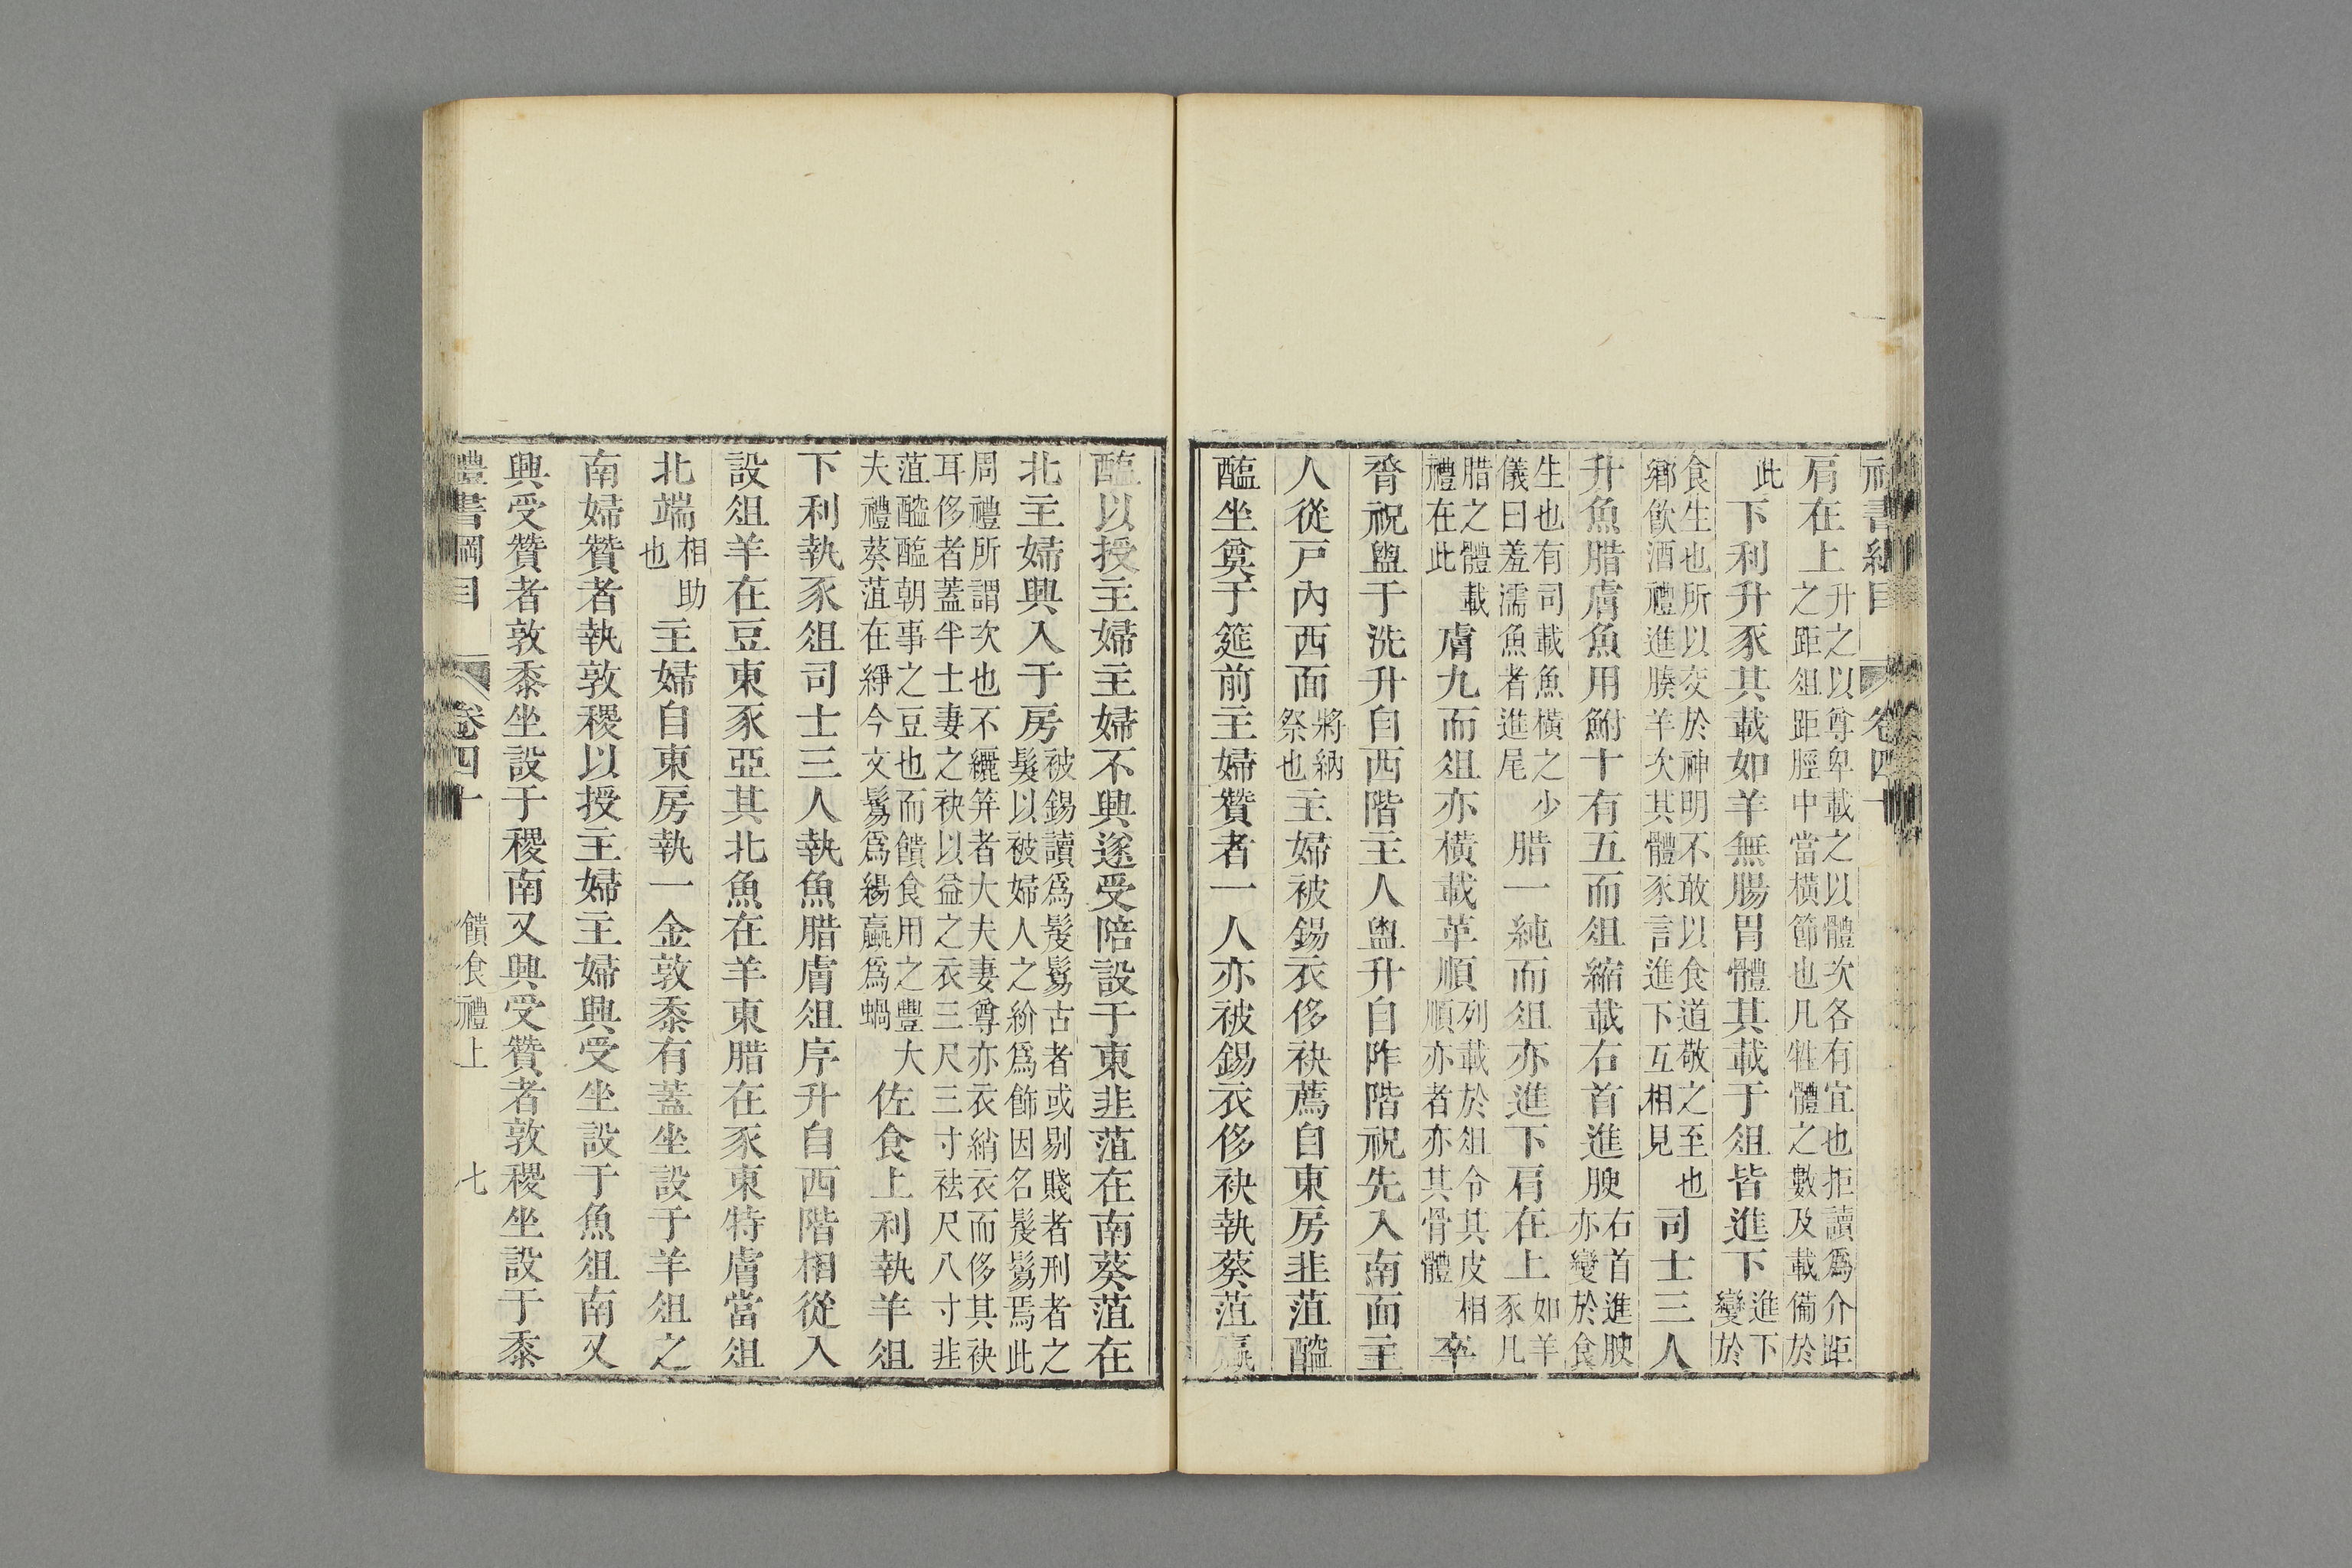 禮書綱目 卷四十
肩在上升之以尊卑載之以體次各有宜也拒讀爲介距之距俎距脛中當橫節也凡牲體之數及載備於
此下利升豕其載如羊無腸胃體其載于俎皆進下進下變於
食生也所以交於神明不敢以食道敬之至也鄉飲酒禮進腠羊次其體豕言進下互相見司士三人
升魚腊膚魚用鮒十有五而俎縮載右首進腴右首進腴亦變於食
生也有司載魚橫之少儀曰羞濡魚者進尾腊一純而俎亦進下肩在上如羊豕凡
腊之體載禮在此膚九而俎亦橫載革順列載於俎令其皮相順亦者亦其骨體卒
脀祝盥于洗升自西階主人盥升自阼階祝先入南面主
人從戶內西面將納祭也主婦被錫衣侈袂薦自東房韭菹醓
醢坐奠于筵前主婦贊者一人亦被錫衣侈袂執葵菹蠃
醢以授主婦主婦不興遂受陪設于東韭菹在南葵菹在
北主婦興入于房被錫讀爲髲鬄古者或剔賤者刑者之髮以被婦人之紒爲飾因名髲鬄焉此
周禮所謂次也不纚笄者大夫妻尊亦衣綃衣而侈其袂耳侈者蓋半士妻之袂以益之衣三尺三寸袪尺八寸韭
菹醓醢朝事之豆也而饋食用之豐大夫禮葵菹在絣今文鬄爲緆蠃爲蝸佐食上利執羊俎
下利執豕俎司士三人執魚腊膚俎序升自西階相從入
設俎羊在豆東豕亞其北魚在羊東腊在豕東特膚當俎
北端相助也主婦自東房執一金敦黍有蓋坐設于羊俎之
南婦贊者執敦稷以授主婦主婦興受坐設于魚俎南又
興受贊者敦黍坐設于稷南又興受贊者敦稷坐設于黍
禮書綱目 卷四十 饋食禮上 七